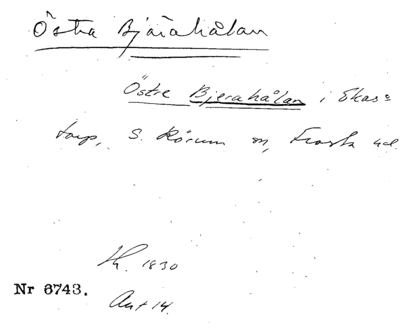 Östra Bjärahålan
Östre Bjerahålan i Ekas=
torp, S. Rörum sn, Frosta hd.
Lh. 1830
Nr 6743.
Akt 14.